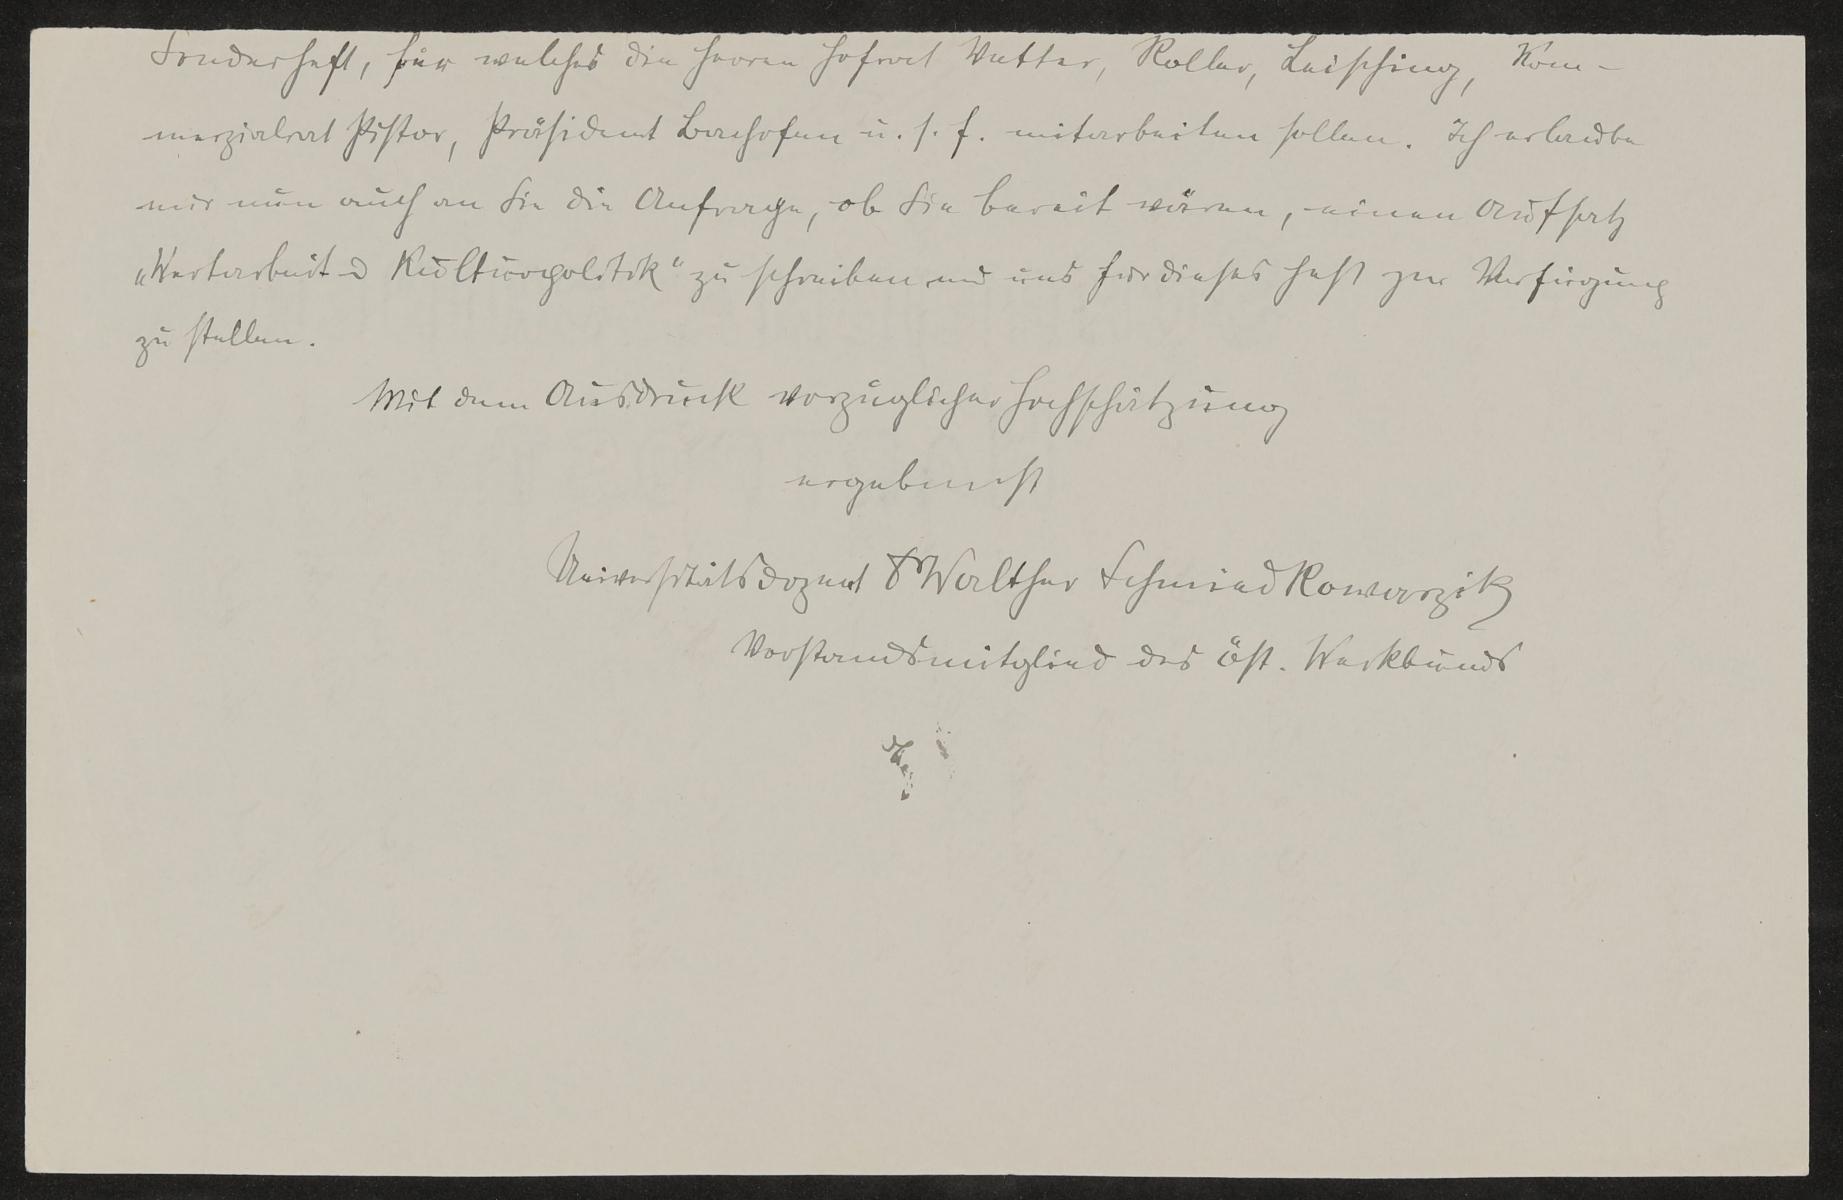 Sonderheft, für welches die Herren Hofrat Vetter, Roller, Leisching, Kom-
merzialrat Pistor, Präsident Bachofen u. s. f. mitarbeiten sollen. Ich erlaube
mir nun auch an Sie die Anfrage, ob Sie bereit wären, einen Aufsatz
„Wertarbeit u Kulturpolitik" zu schreiben und uns für dieses Heft zur Verfügung
zu stellen.
Mit dem Ausdruck vorzüglicher Hochschätzung
ergebenst
Universitätsdozent Dr Walther Schmied Kowarzik
Vorstandsmitglied des öst. Werkbunds